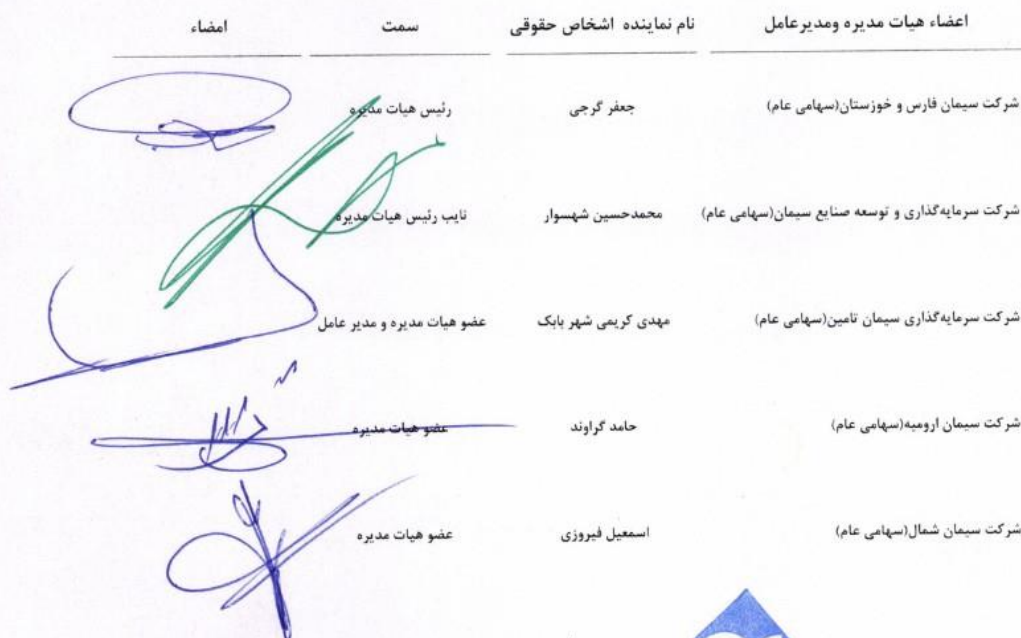 اعضاء هیات مدیره ومدیرعامل نام نماینده اشخاص حقوقی سمت امضاء
شرکت سیمان فارس و خوزستان(سهامی عام) جعفر گرجی رئیس هیات مدیره
شرکت سرمایه‌گذاری و توسعه صنایع سیمان(سهامی عام) محمدحسین شهسوار نایب رئیس هیات مدیره
شرکت سرمایه‌گذاری سیمان تامین(سهامی عام) مهدی کریمی شهر بابک عضو هیات مدیره و مدیر عامل
شرکت سیمان ارومیه(سهامی عام) حامد گراوند عضو هیات مدیره
شرکت سیمان شمال(سهامی عام) اسمعیل فیروزی عضو هیات مدیره